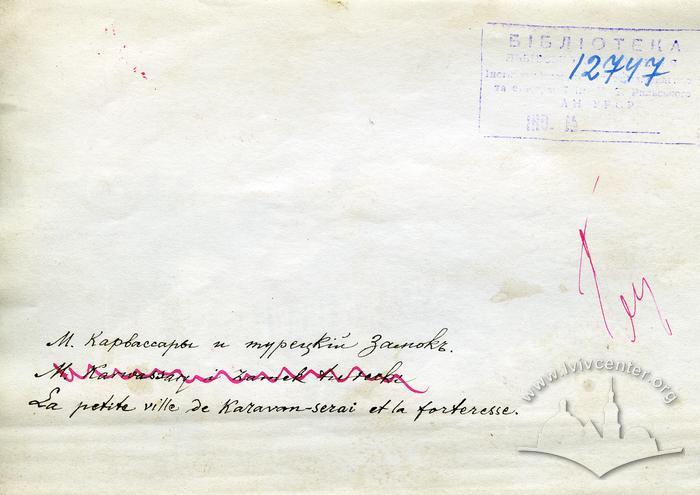 БІБЛІОТЕКА
12747
та
АН УРСР
ІНВ. №
М. Карвассары и турецкій Замокъ.
M. Karwassary i Zamek turecki
La petite ville de Karavan-serai et la forteresse.
www.lvivcenter.org